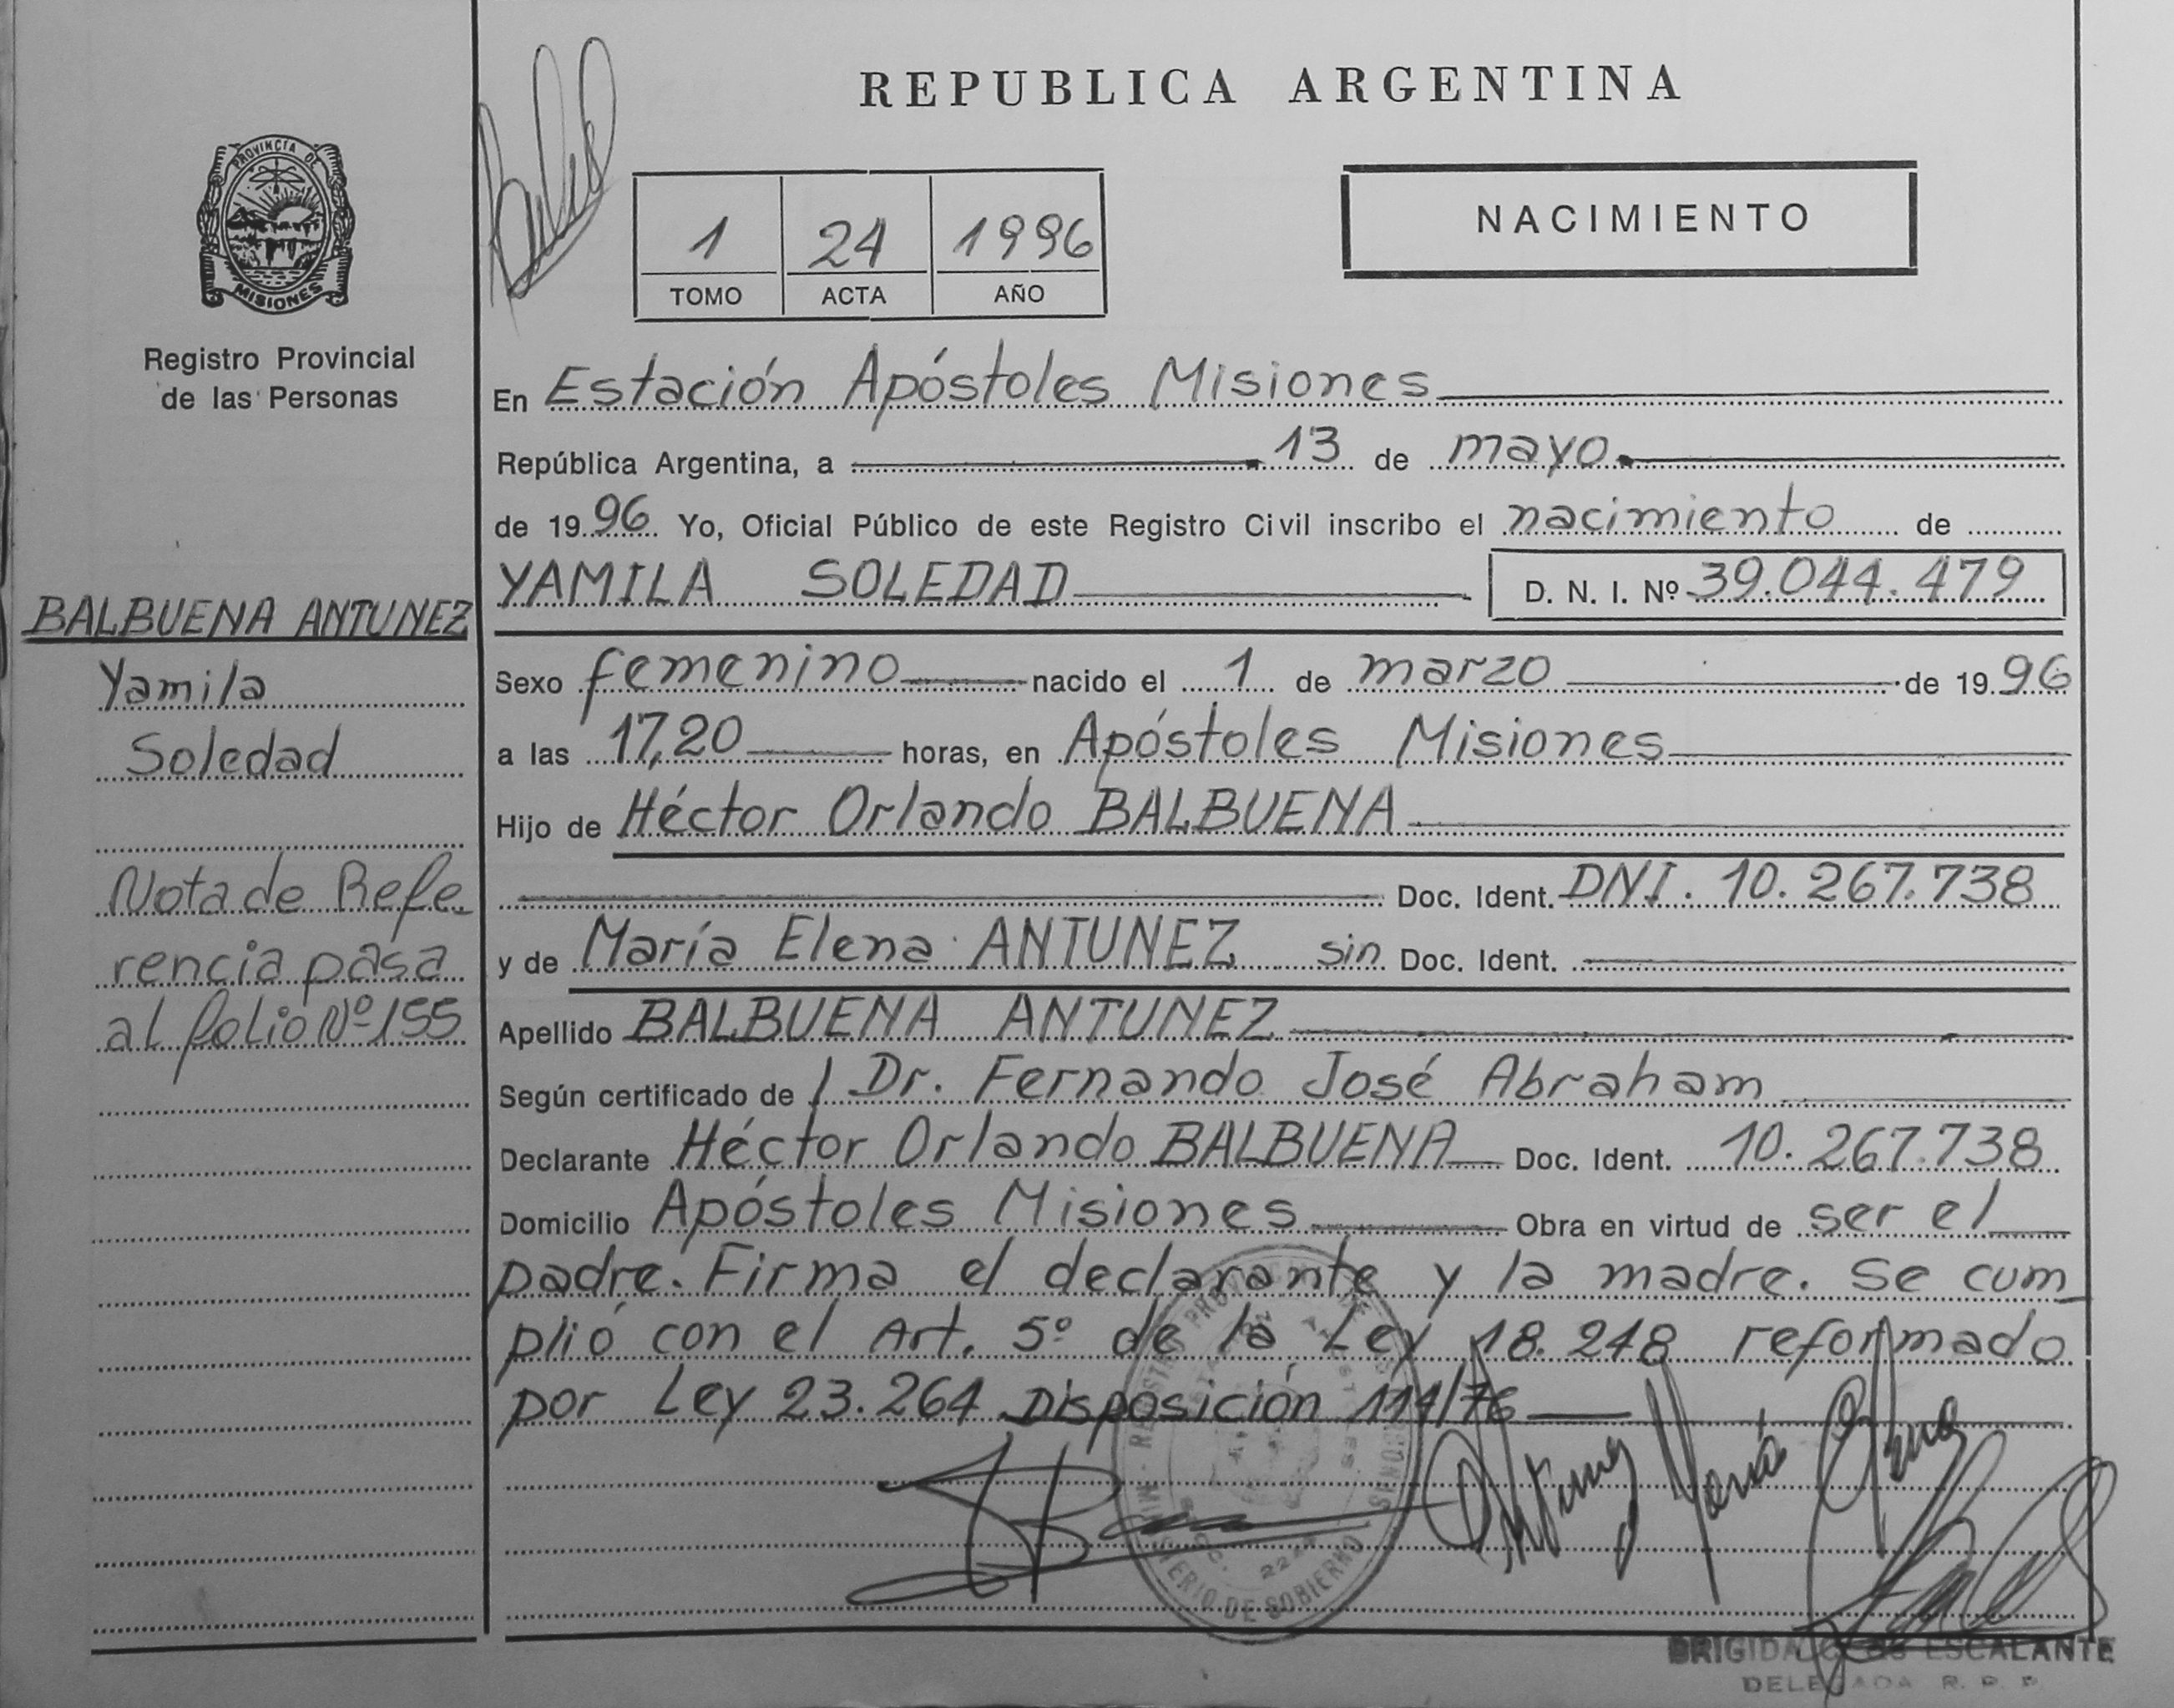 REPUBLICA ARGENTINA
PROVINCIA DE
MISIONES
Registro Provincial
de las Personas
1 24 1996
TOMO ACTA AÑO
NACIMIENTO
En Estación Apóstoles Misiones
República Argentina, a 13 de mayo
de 1996 Yo, Oficial Público de este Registro Civil inscribo el nacimiento de
YAMILA SOLEDAD D. N. I. Nº 39.044.479
BALBUENA ANTUNEZ
Yamila
Soledad
Nota de Refe
rencia pasa
al folio Nº 155
Sexo femenino nacido el 1 de marzo de 1996
a las 17,20 horas, en Apóstoles Misiones
Hijo de Héctor Orlando BALBUENA
Doc. Ident. DNI. 10.267.738
y de María Elena ANTUNEZ sin Doc. Ident.
Apellido BALBUENA ANTUNEZ
Según certificado de / Dr. Fernando José Abraham
Declarante Héctor Orlando BALBUENA Doc. Ident. 10.267.738
Domicilio Apóstoles Misiones Obra en virtud de ser el
padre. Firma el declarante y la madre. Se cum_
plió con el Art. 5º de la Ley 18.248 reformado
por Ley 23.264 Disposición 114/76
Antunez María Elena
MINISTERIO DE GOBIERNO
BRIGIDA ESCALANTE
DELEGADA R. P. P.